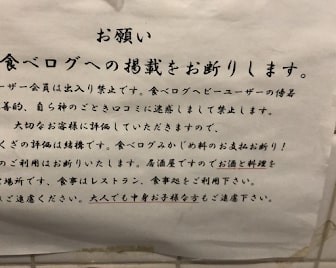 お願い
食べログへの掲載をお断りします。
ーザー会員は出入り禁止です。食べログヘビーユーザーの傍若
善的、自ら神のごとき口コミに迷惑しまして禁止します。
大切なお客様に評価していただきますので、
くざの評価は結構です。食べログみかじめ料のお支払お断り！
のご利用はお断りいたします。居酒屋ですのでお酒と料理を
場所です、食事はレストラン、食事処をご利用下さい。
ご遠慮ください。大人でも中身お子様な方もご遠慮下さい。